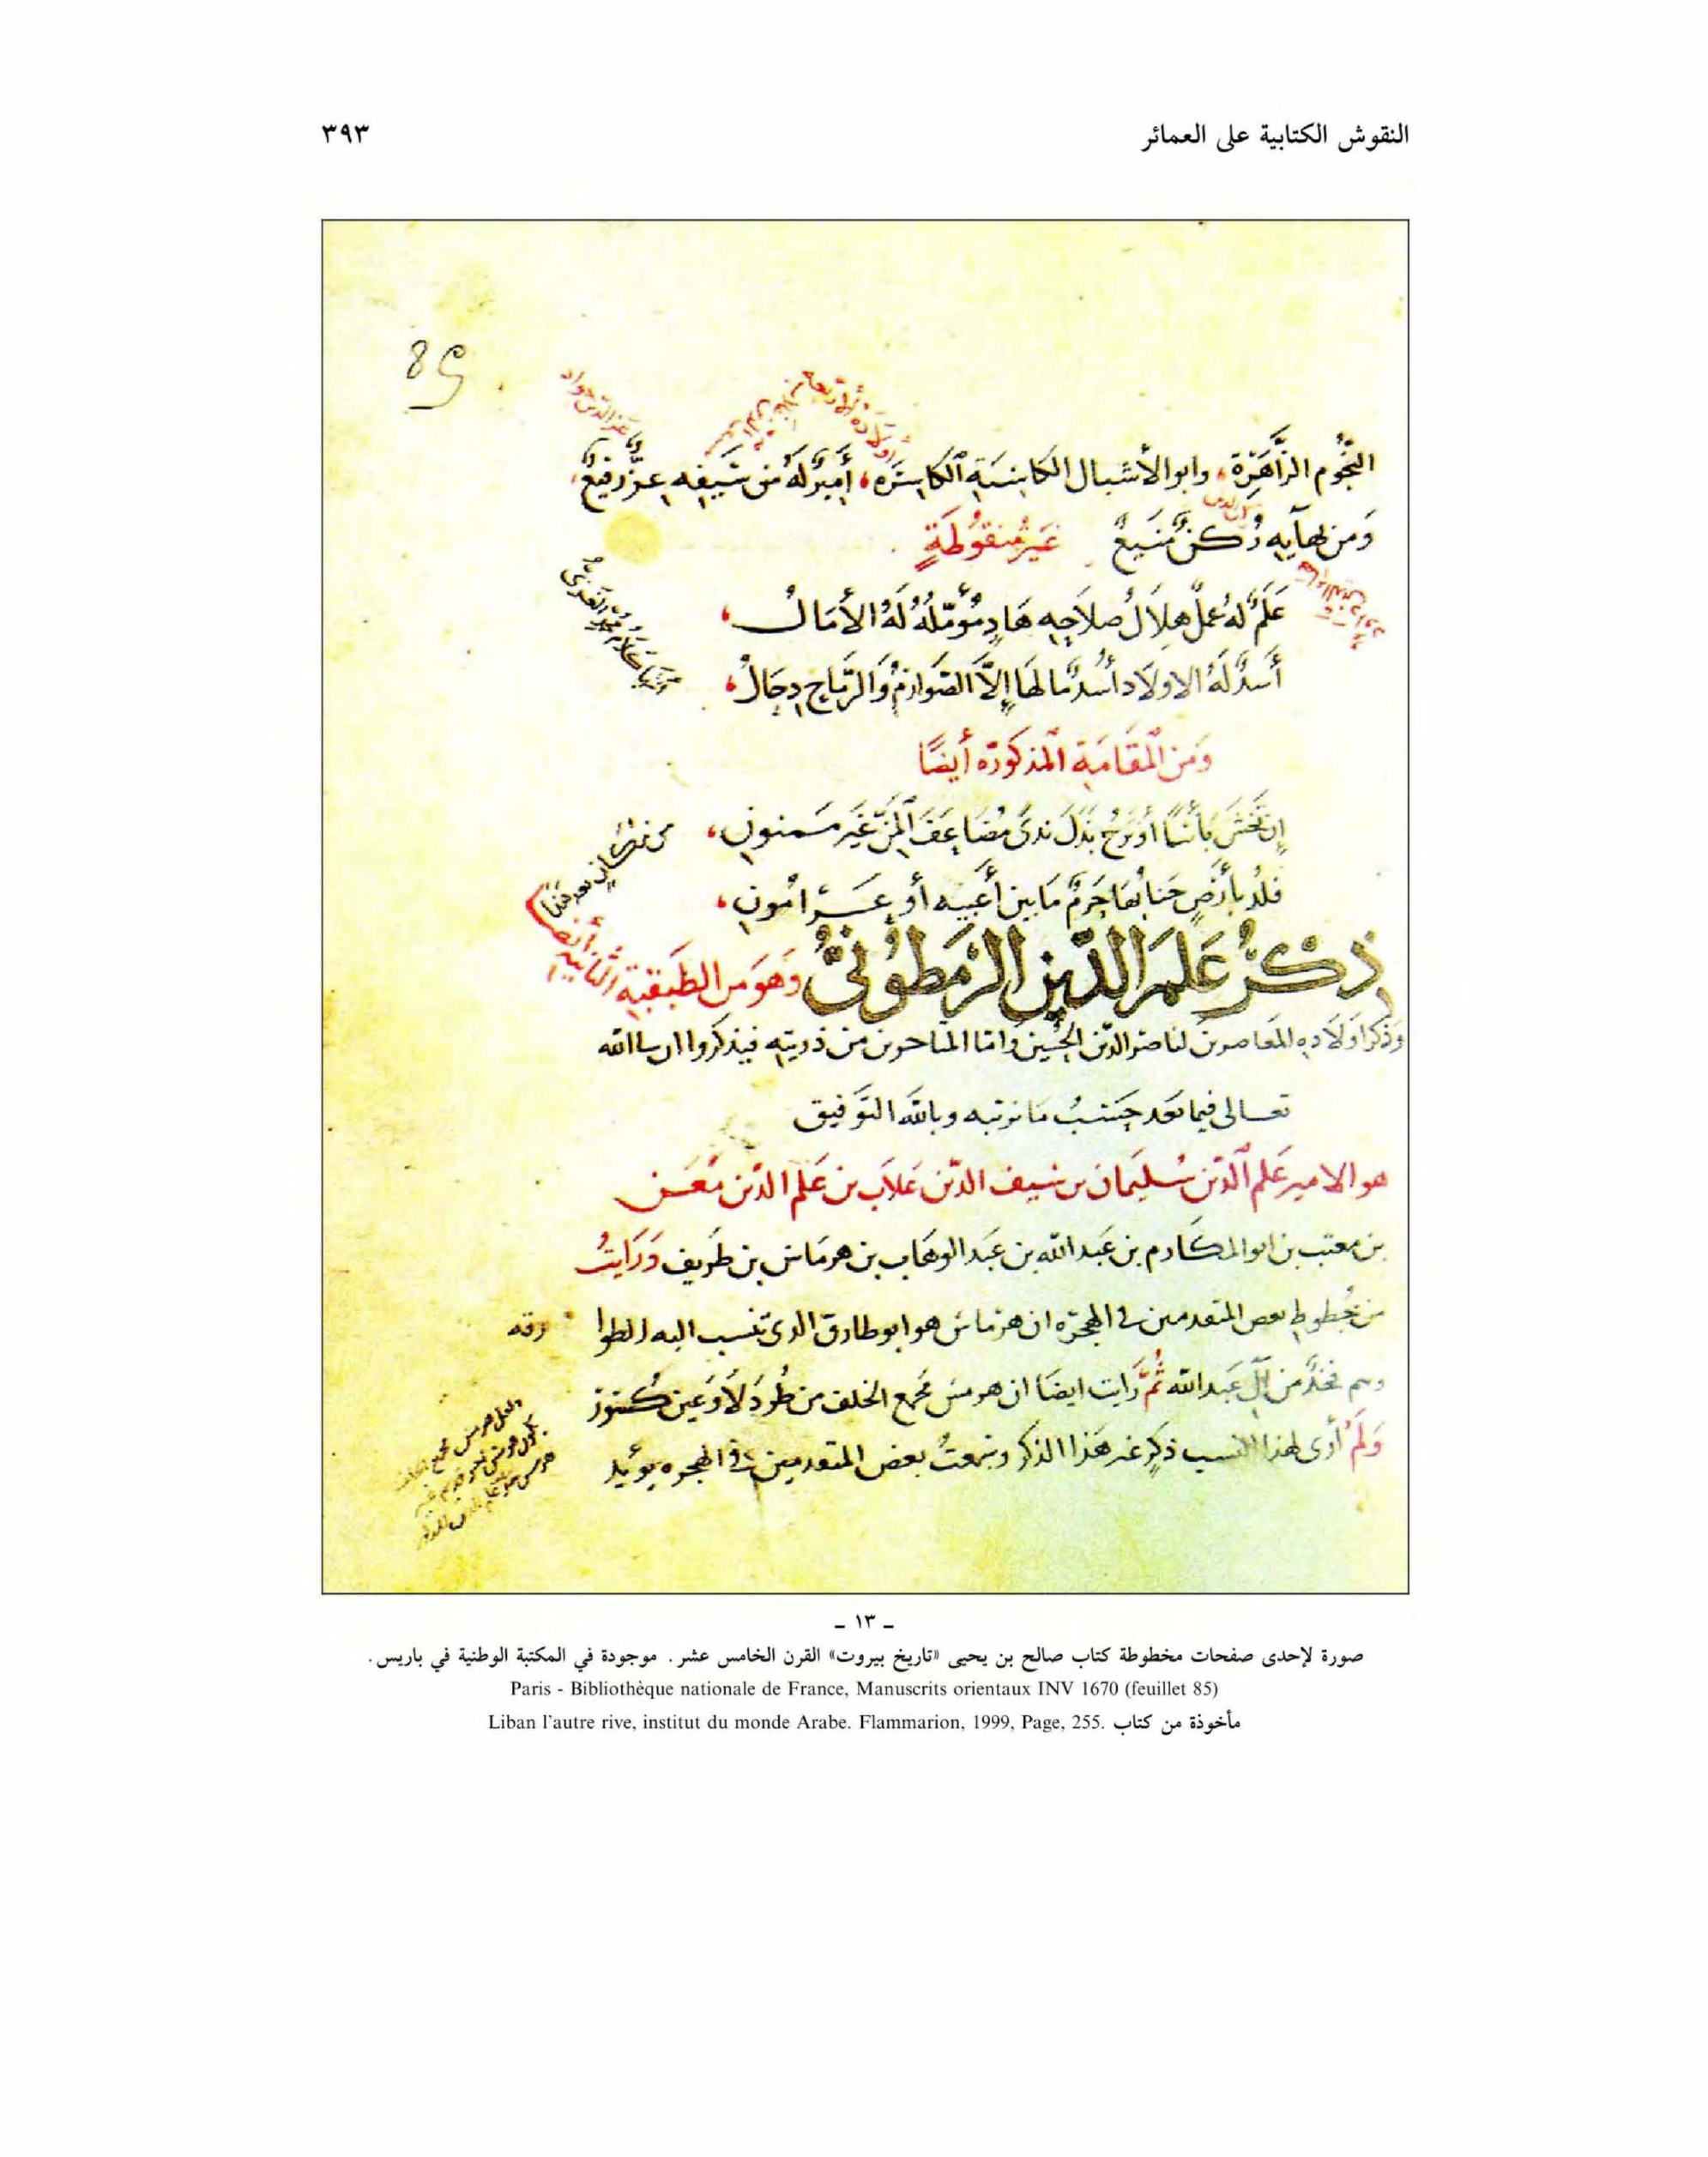 النقوش الكتابية على العمائر
٣٩٣
85
النجُوم الزاهَرَة، وابو الأشبال الكاسَبَةِ ٱلكاسَره، أميرٌ لهُ من سَيفِهِ عِزٌّ رفيعٌ،
وَمن بهآيهِ رُكنٌ مَنيعٌ غَيرُ منقُوطَةٍ
عَلَمٌ لهُ عملٌ هِلَالُ صلَاحِهِ هَادٍ مُؤمّلُهُ لَهُ الأمَالُ،
أسَدٌ لَهُ الاولَاد أُسدٌ مَا لهَا إِلَّا الصَوارمُ وَالرّمَاح دِحَالُ،
وَمن ٱلمقَامَةِ ٱلمذكورَه أيضًا
إن تخشَ بأسًا أو ترجُ بَذلَ ندىً مُضَاعَف ٱلمَنّ غَير ممنونِ،
فلُذ بأرضٍ جَنابُهَا حَرَمٌ مَا بين أعبيه أو عَرامُونِ،
ذكرُ عَلَم الدّين الرَمطُونيّ وَهوَ من الطبَقةِ الثَّانيةِ أيضًا
وَذكرُ اولَادهِ المعَاصرين لنَاصر الدّين الحُسَين وَامّا المتاخرون من ذريتهِ فيذكروا ان سا الله
تعالى فيما بَعَد حَسَبُ مَا نرتبه وبالله التوَفيق
هو الامير عَلم ٱلدّين سُليمَان بن سَيف الدّين غلَاب بن عَلم الدّين مَعَن
بن معتب بن ابو المكَارم بن عَبد الله بن عَبد الوهَاب بن هرمَاس بن طَريف وَرَايتُ
من خُطوط بعض المتقدمين في الهجره ان هرمَاس هو ابو طارق الدي تنسب اليه الطوا
رقه
وهم فخذٌ من آل عَبد الله ثُمّ رَايت ايضَا ان هرمس مجمع الخلف من طُردَلَا وَعين كُسوَر
وَلَم أرى لهذا النسب ذكر غير هَذا الذكر وسمعتُ بعض المتقدمين في الهجره يوَيد
– ١٣ –
صورة لإحدى صفحات مخطوطة كتاب صالح بن يحيى «تاريخ بيروت» القرن الخامس عشر. موجودة في المكتبة الوطنية في باريس.
Paris - Bibliothèque nationale de France, Manuscrits orientaux INV 1670 (feuillet 85)
Liban l'autre rive, institut du monde Arabe. Flammarion, 1999, Page, 255. مأخوذة من كتاب